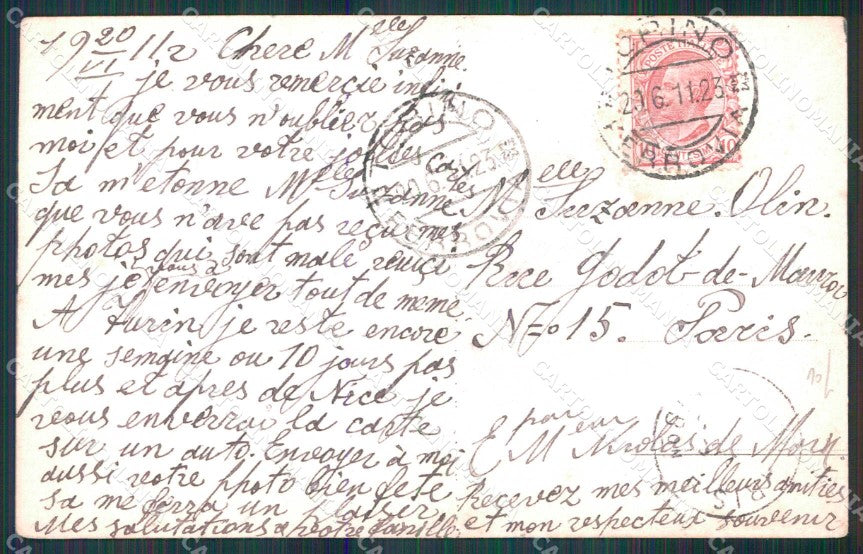 19 20/VI 11 Chere Mlle Suzanne.
je vous remercie infini
ment que vous n'oubliez pas
moi et pour votre jolies cartes
Sa m'etonne Mlle Suzanne
que vous n'ave pas reçu mes
photos qui sont male reuci
mes je vous ai envoyer tout de meme.
A Turin je reste encore
une semaine ou 10 jours pas
plus et apres de Nice je
vous enverrai la carte
sur un auto. Envoyer à moi
aussi votre photo bien
sa me ferra un plaisir
Mes salutations a votre famille
TORINO
20.6.11.23
FERROVIA
POSTE
Mlle Suzanne. Olin.
Rue Godot-de-Mauroy
N=o 15. Paris.
E M Nicolas de
Recevez mes meilleurs amities
et mon respecteux souvenir
TORINO
23
FERROVIA
CARTOLINOMANIA